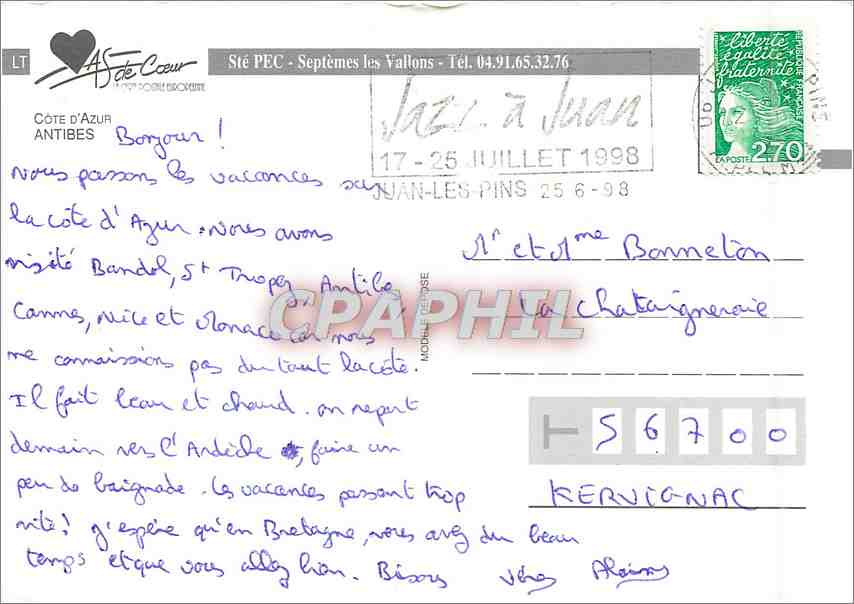 LT
AS de Cœur
LA CARTE POSTALE EUROPEENNE
Sté PEC - Septèmes les Vallons - Tél. 04.91.65.32.76
liberté
égalité
fraternité
REPUBLIQUE FRANÇAISE
LA POSTE
2,70
Jazz à Juan
17 - 25 JUILLET 1998
JUAN-LES-PINS 25 6 - 98
CÔTE D'AZUR
ANTIBES
Bonjour !
Nous passons les vacances sur
la côte d'Azur. Nous avons
visité Bandol, St Tropez, Antibes,
Cannes, Nice et Monaco car nous
ne connaissions pas du tout la côte.
Il fait beau et chaud. on repart
demain vers l'Ardèche, faire un
peu de baignade. les vacances passent trop
vite! j'espère qu'en Bretagne, vous avez du beau
temps et que vous allez bien. Bisous
MODÈLE DÉPOSÉ
Mr et Mme Bonneton
La Chataigneraie
56700
KERVIGNAC
CPAPHIL